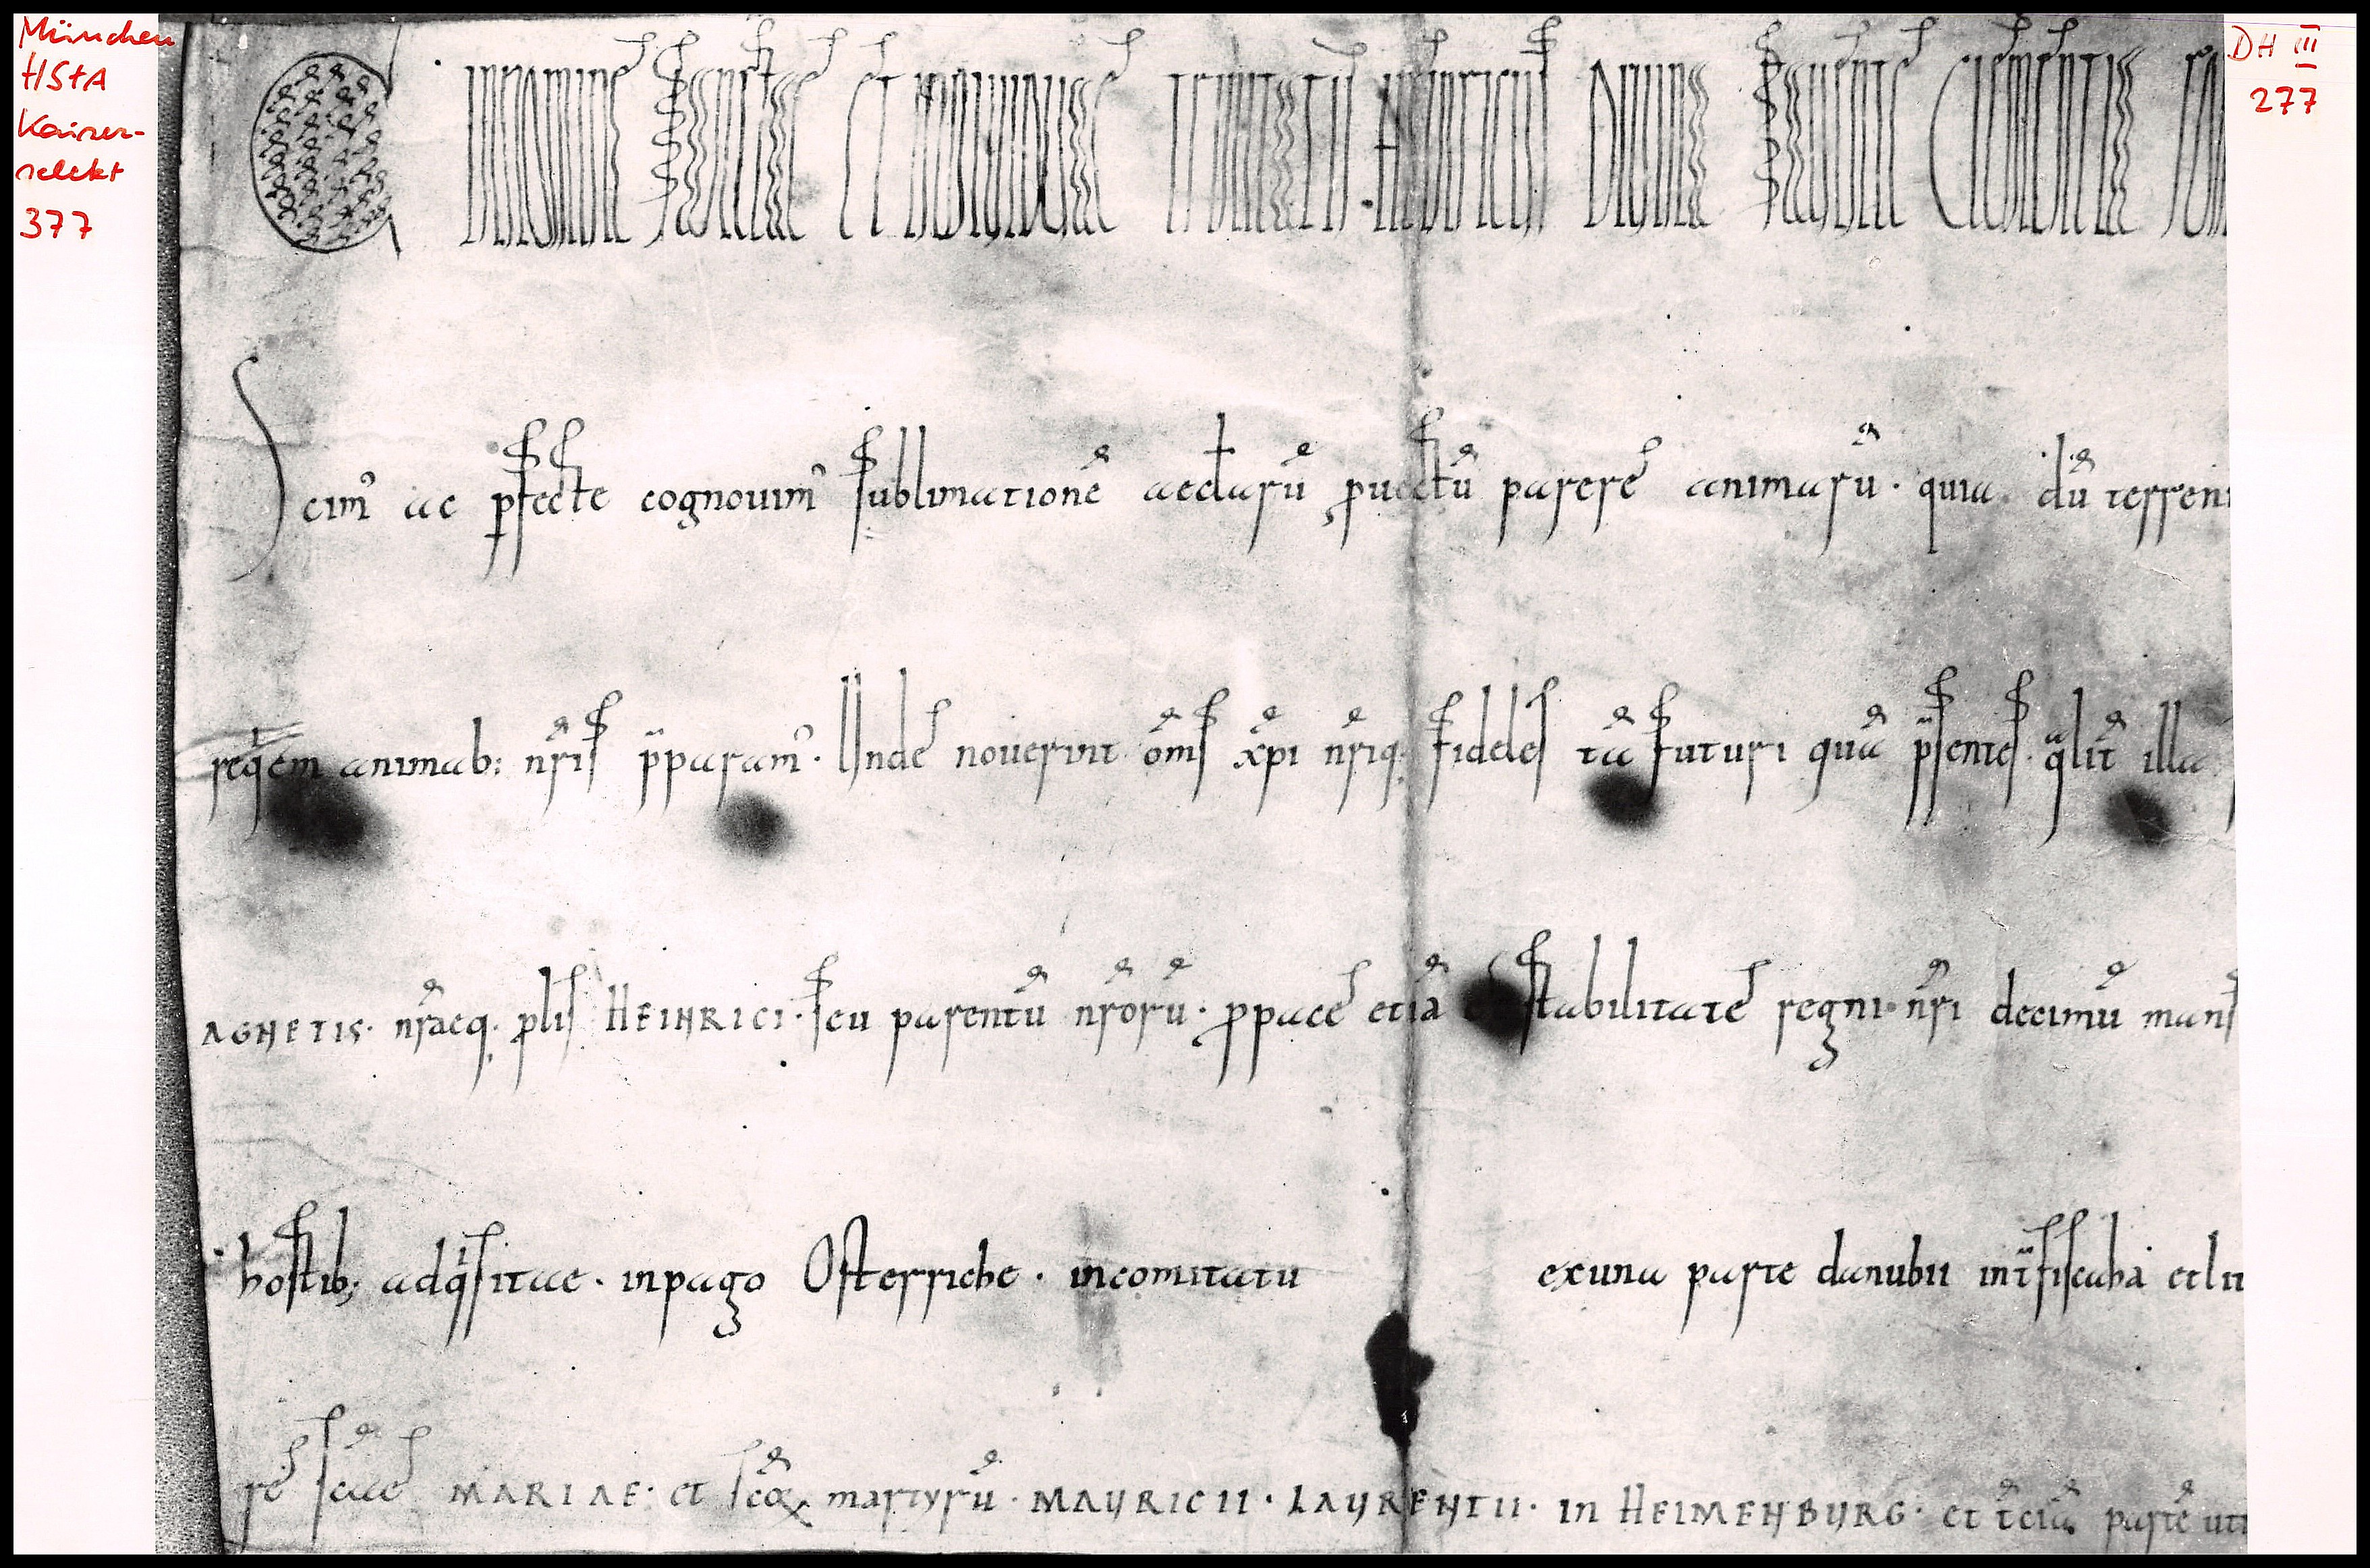 München
HStA
Kaiser-
selekt
377
DH III
277
IN NOMINE SANCTAE ET INDIVIDUAE TRINITATIS HEINRICUS DIVINA FAVENTE CLEMENTIA
Scim᾽ ac pfecte cognouim᾽ sublimationē aecłarū puectū parere animarū · quia dū terreni
req̇em animab; nr̄is p̄param᾽ · Unde nouerint om̄s xp̄i nr̄iq; fideles tā futuri quā p̄sentes · q̄lit̄ illa
AGNETIS · nr̄aeq; plis HEINRICI · seu parentū nr̄orū · p pace etiā stabilitate regni nr̄i decimū mans
hostib; adq̇sitae · in pago Osterriche · in comitatu ex una parte danubii int̄ fiscaha et
re sc̄ae MARIAE · et sc̄oꝝ martyrū · MAURICII · LAURENTII · in HEIMENBURG · et t̄ciā partē